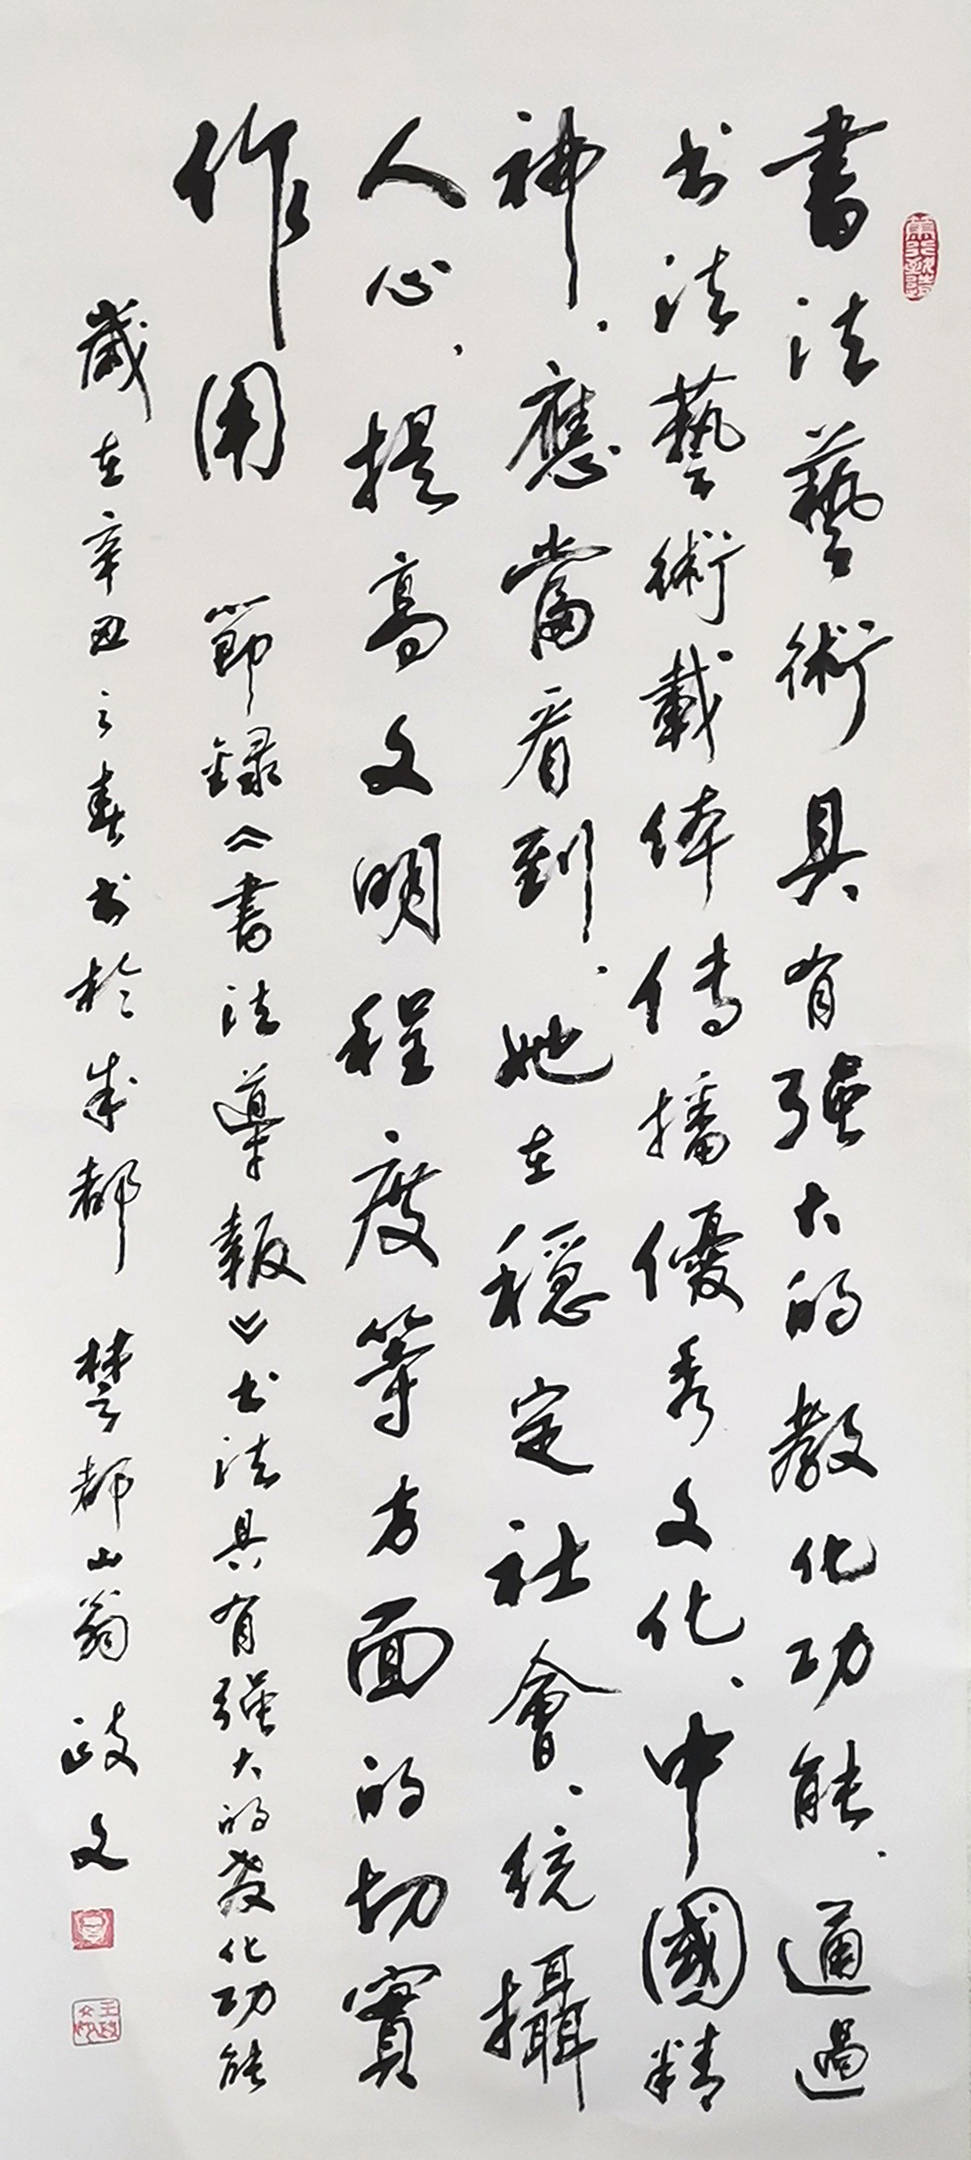 書法藝術具有强大的教化功能、通過
书法藝術載体傳播優秀文化、中國精
神、應當看到、她在穩定社會、統攝
人心、提高文明程度等方面的切實
作用
節録《書法導報》书法具有强大的教化功能
歲在辛丑之春书於成都 楚都山翁 政文
王政文